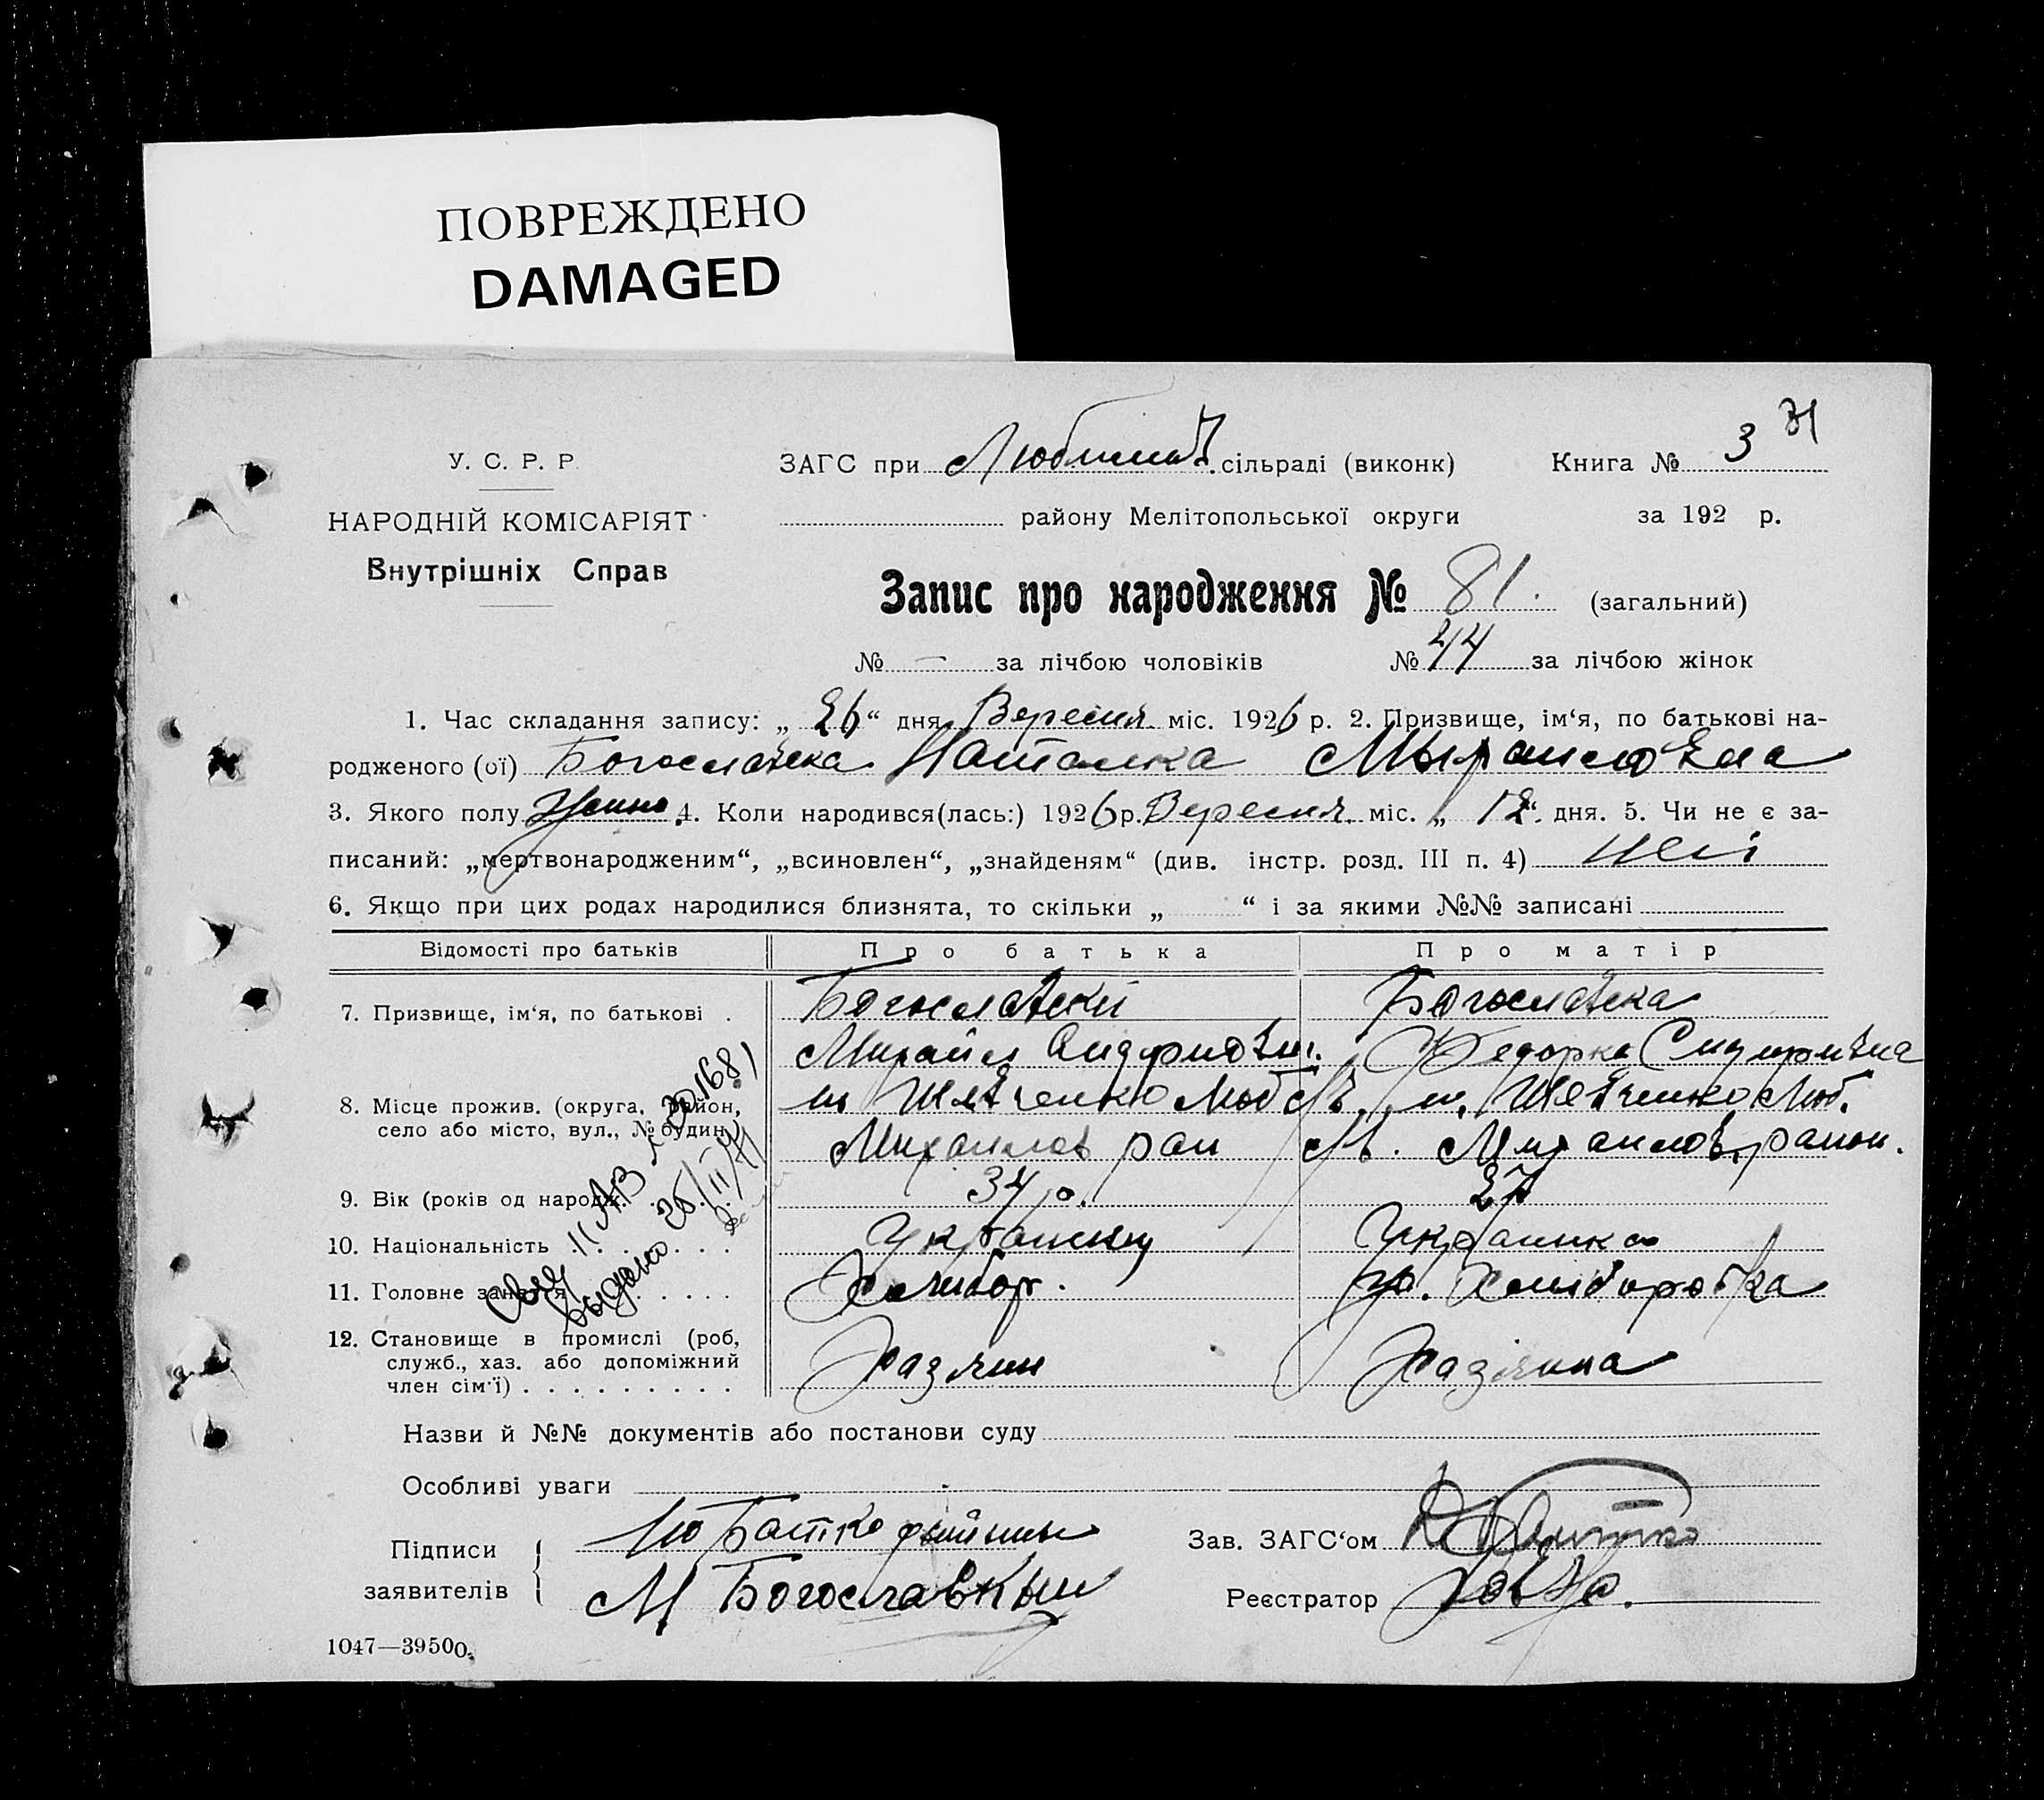 ПОВРЕЖДЕНО
DAMAGED
31
У. С. Р. Р.
ЗАГС при сільраді (виконк) Книга № 3
НАРОДНІЙ КОМІСАРІЯТ
району Мелітопольської округи за 192 р.
Внутрішніх Справ
Запис про народження № 81. (загальний)
№ — за лічбою чоловіків № 44 за лічбою жінок
1. Час складання запису: „ 26 “ дня Вересня міс. 1926 р. 2. Призвище, ім‘я, по батькові на-
родженого (ої) Богославска Наталка
3. Якого полу 4. Коли народився(лась:) 1926 р. Вересня міс. „ 12 “ дня. 5. Чи не є за-
писаний: „мертвонародженим“, „всиновлен“, „знайденям“ (див. інстр. розд. III п. 4) нет
6. Якщо при цих родах народилися близнята, то скільки „ “ і за якими №№ записані
Відомості про батьків Про батька Про матір
7. Призвище, ім‘я, по батькові . Богославский Богославска
Михайло
8. Місце прожив. (округа, район, с. Шевченко Люб с. Шевченко Люб.
село або місто, вул., № будин. Михайлов район.
9. Вік (років од народж. 34 р. 27
10. Національність Українка
11. Головне заняття Хлибор. Хлібороб
12. Становище в промислі (роб, Хазяин Хазяика
служб., хаз. або допоміжний
член сім‘ї) . . . . . . . . .
30168
Выдано 25/II
Назви й №№ документів або постанови суду
Особливі уваги
Підписи Зав. ЗАГС‘ом
заявителів М Богославкый Реєстратор
1047—39500.